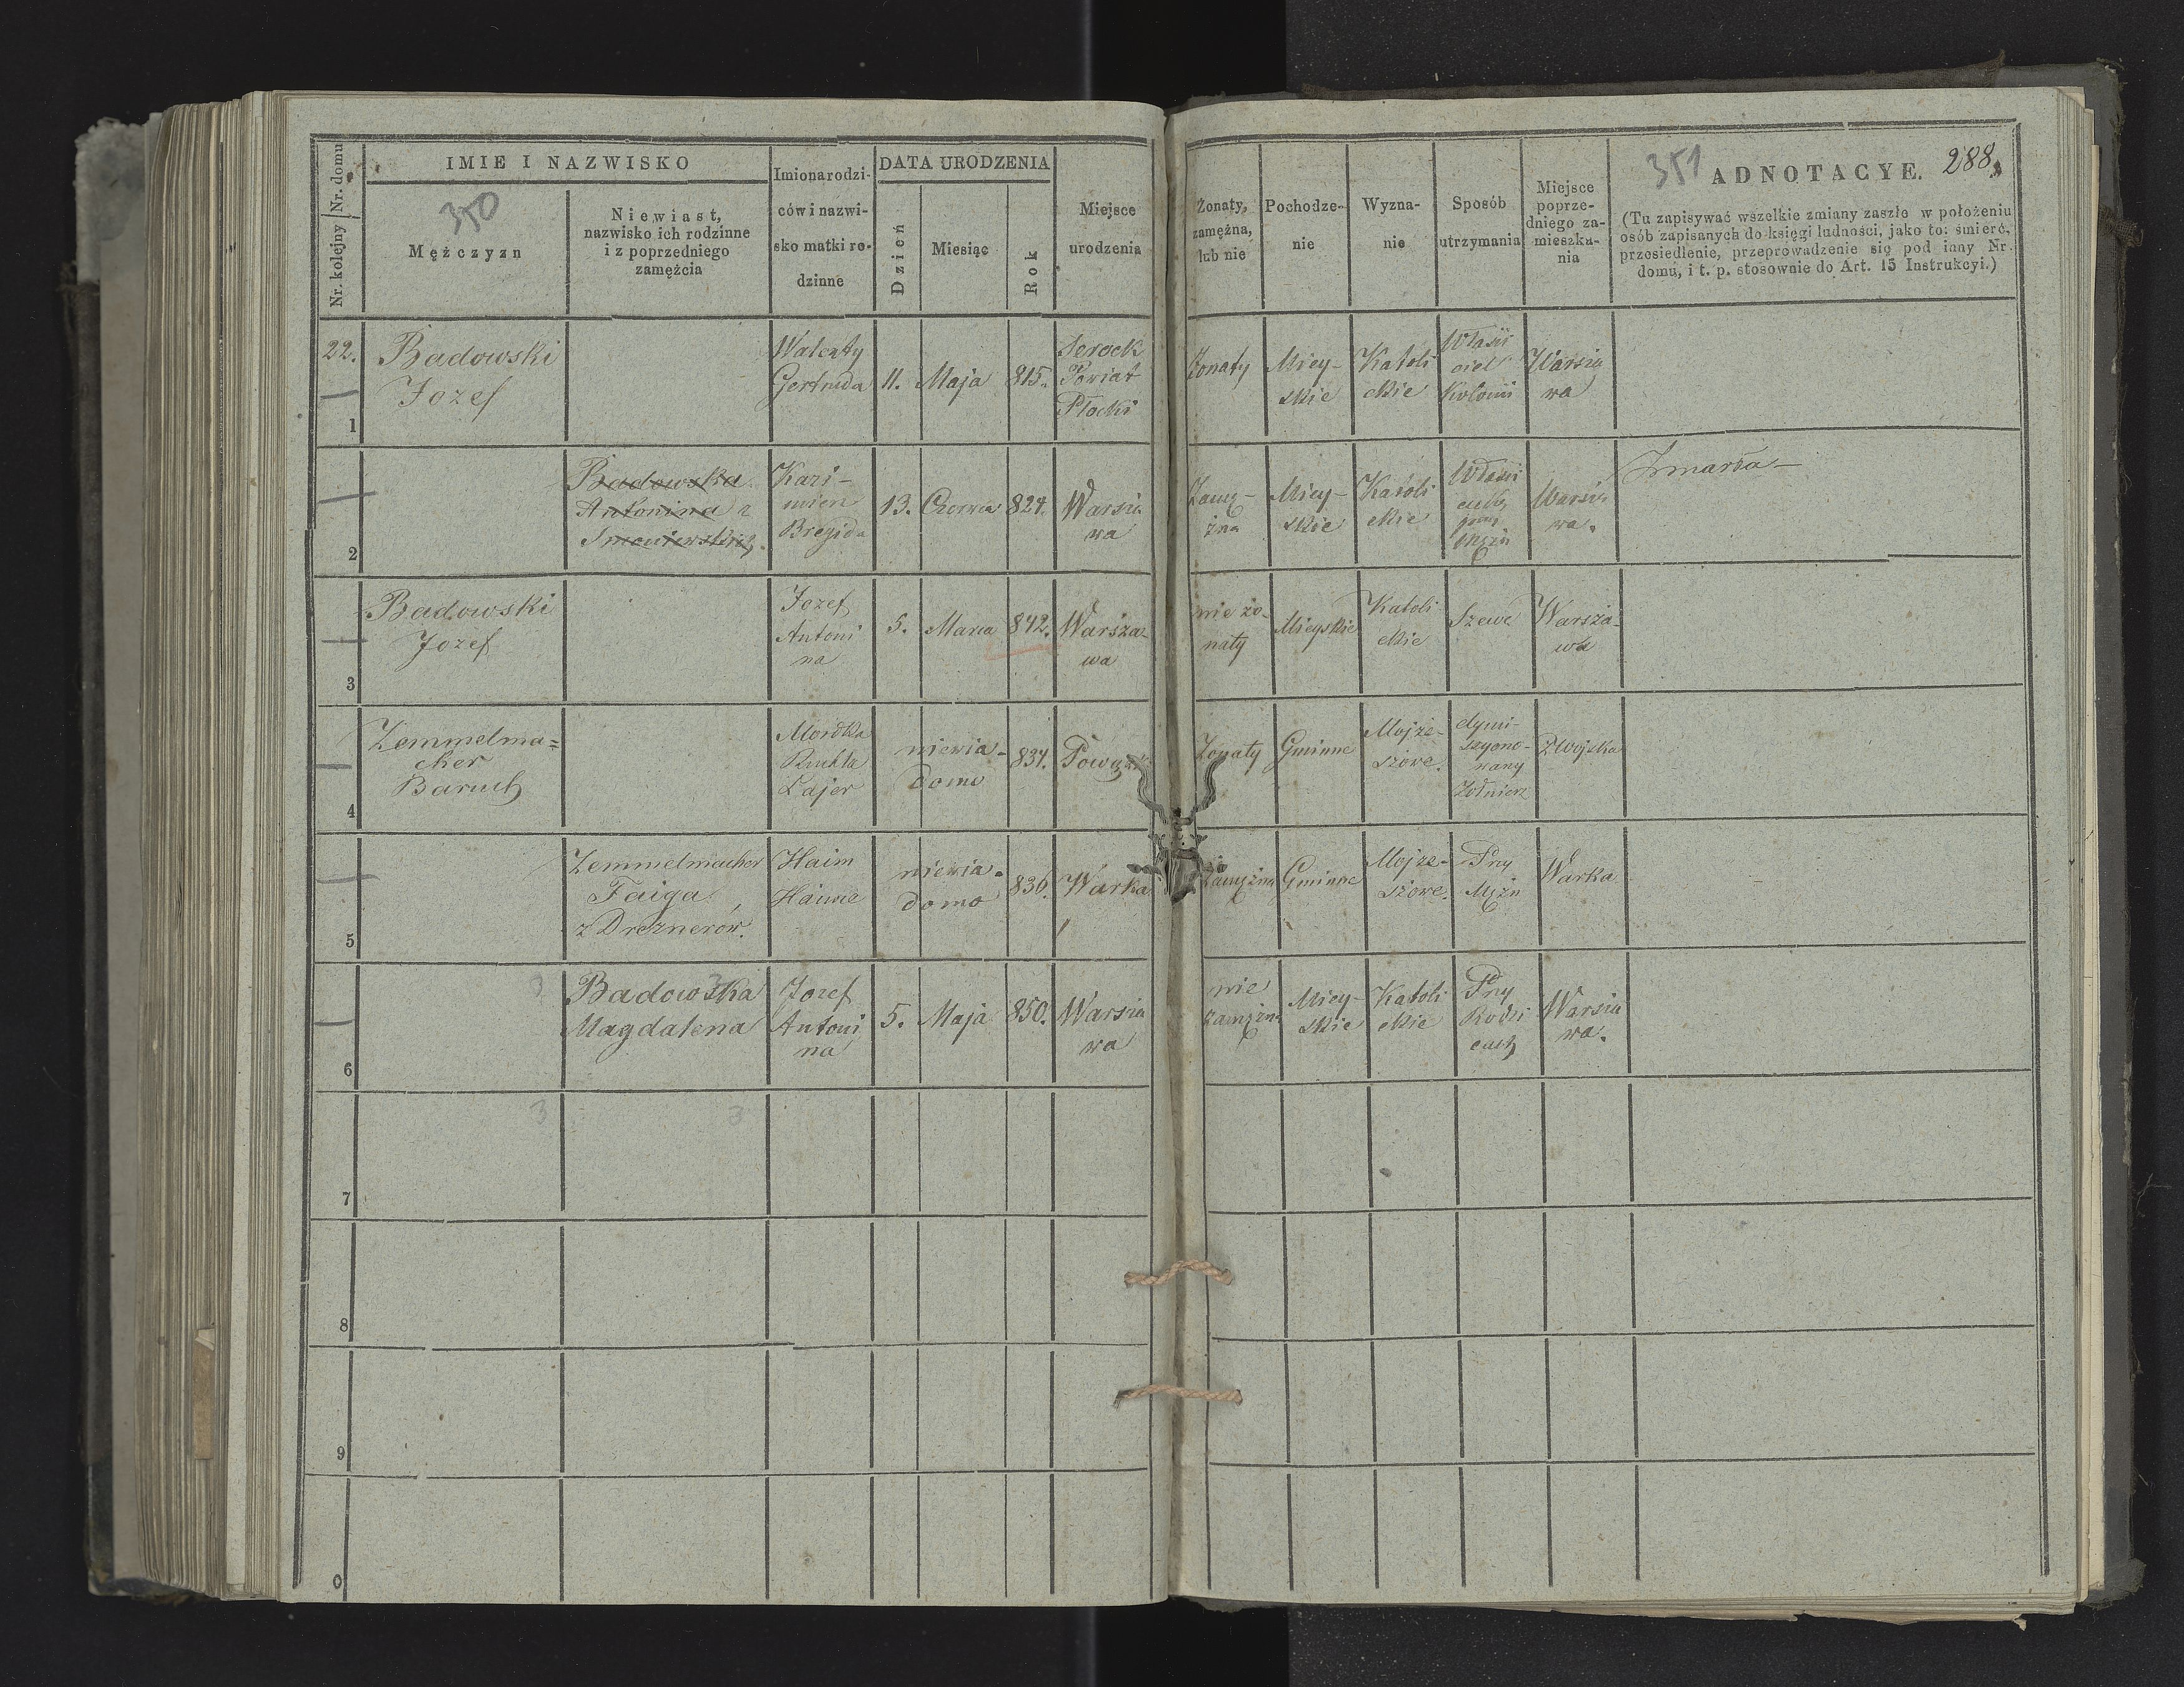 Nr. kolejny | Nr. domu
IMIE I NAZWISKO
350
Mężczyzn
Niewiast,
nazwisko ich rodzinne
i z poprzedniego
zamężcia
Imiona rodzi-
ców i nazwi-
sko matki ro-
dzinne
DATA URODZENIA
Dzień
Miesiąc
Rok
Miejsce
urodzenia
Żonaty,
zamężna,
lub nie
Pochodze-
nie
Wyzna-
nie
Sposób
utrzymania
Miejsce
poprze-
dniego za-
mieszka-
nia
351
ADNOTACYE.
288.
(Tu zapisywać wszelkie zmiany zaszłe w położeniu
osób zapisanych do księgi ludności, jako to: śmierć,
przesiedlenie, przeprowadzenie się pod inny Nr.
domu, i t. p. stosownie do Art. 15 Instrukcyi.)
22.
1
Badowski
Jozef
Walenty
Gertruda
11.
Maja
815.
Serock
Powiat
Płocki
Żonaty
Miey-
skie
Katoli
ckie
Właści
ciel
Kolonii
Warsza
wa
2
Badowska
Antonina z
Kazi-
mierz
Brygida
13.
Czerwca
824.
Warsza
wa
Zamę-
żna
Miey-
skie
Katoli
ckie
Warsza
wa.
Zmarła
3
Badowski
Jozef
Jozef
Antoni
na
5.
Marca
842.
Warsza-
wa
nie żo-
naty
Mieyskie
Katoli
ckie
Szewc
Warsza-
wa
4
Zemmelma=
cher
Baruch
Mordka
Ruchla
Lajer
niewia-
domo
834.
Żonaty
Gminne
Mojże-
szowe.
dymi-
szyono-
wany
żołnierz
z Wojska
5
Zemmelmacher
Faiga
z Dreznerów.
Haim
niewia-
domo
836.
Warka
Zamężna
Gminne
Mojże-
szowe.
Przy
Mężu
Warka
6
Badowska
Magdalena
Jozef
Antoni
na
5.
Maja
850.
Warsza
wa
nie
zamężna
Miey-
skie
Katoli
ckie
Przy
Rodzi
cach
Warsza
wa.
3
3
7
8
9
0